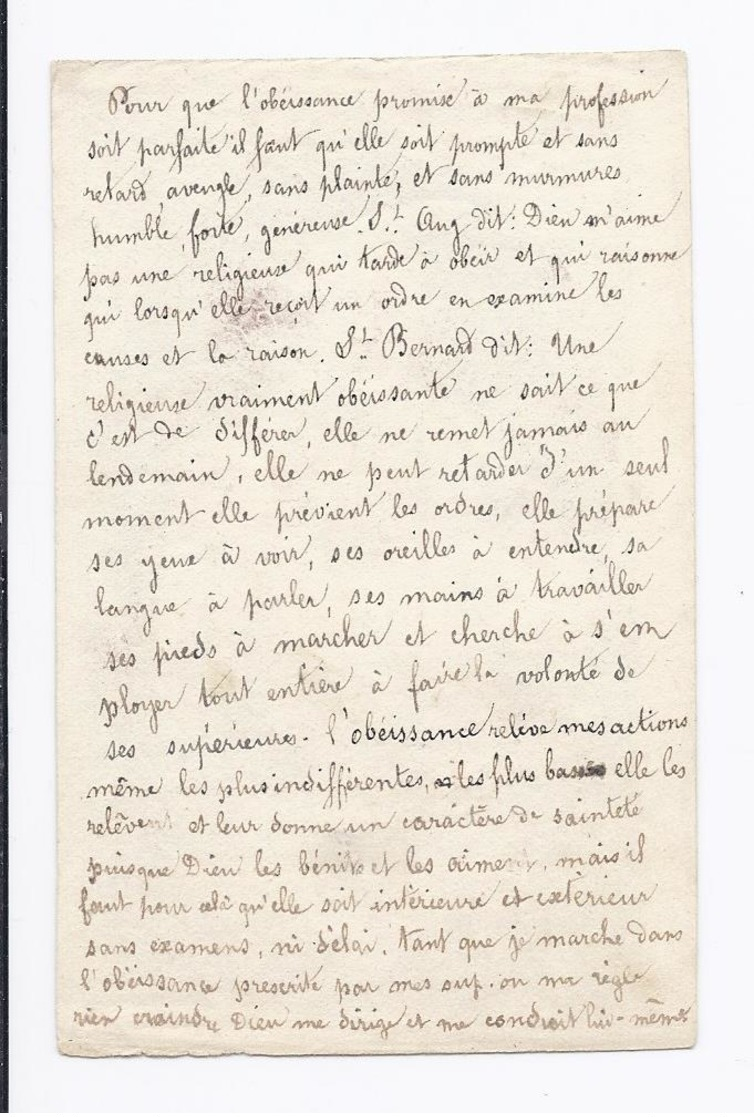 Pour que l'obéissance promise à ma profession
soit parfaite il faut qu'elle soit prompte et sans
retard, aveugle, sans plainte, et sans murmures
humble, forte, généreuse. St. Aug dit: Dieu n'aime
pas une religieuse qui tarde à obéir et qui raisonne
qui lorsqu'elle reçoit un ordre en examine les
causes et la raison. St. Bernard dit: Une
religieuse vraiment obéissante ne sait ce que
c'est de différer, elle ne remet jamais au
lendemain, elle ne peut retarder d'un seul
moment elle prévient les ordres, elle prépare
ses yeux à voir, ses oreilles à entendre, sa
langue à parler, ses mains à travailler
ses pieds à marcher et cherche à s'em
ployer tout entière à faire la volonté de
ses supérieures. l'obéissance relève mes actions
même les plus indifférentes, les plus basses elle les
relèvent et leur donne un caractère de sainteté
puisque Dieu les bénits et les aiment, mais il
faut pour celà qu'elle soit intérieure et extérieur
sans examens, ni délai. tant que je marche dans
l'obéissance prescrite par mes sup. ou ma règle
rien craindre Dieu me dirige et me conduit lui-même